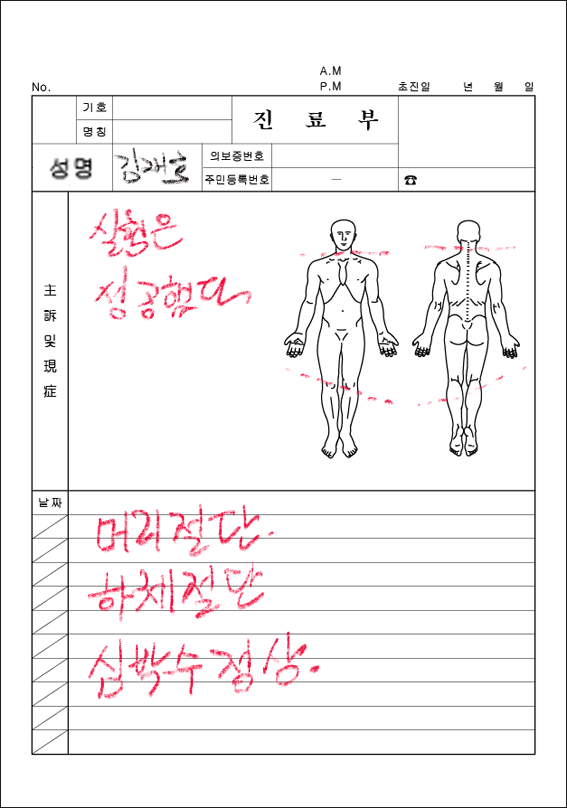 A.M
No. P.M 초진일 년 월 일
기호
명칭
진 료 부
성명 김재호
의보증번호
주민등록번호 —
☎
主訴및現症
실험은
성공했다
날짜
머리절단.
하체절단
심박수정상.